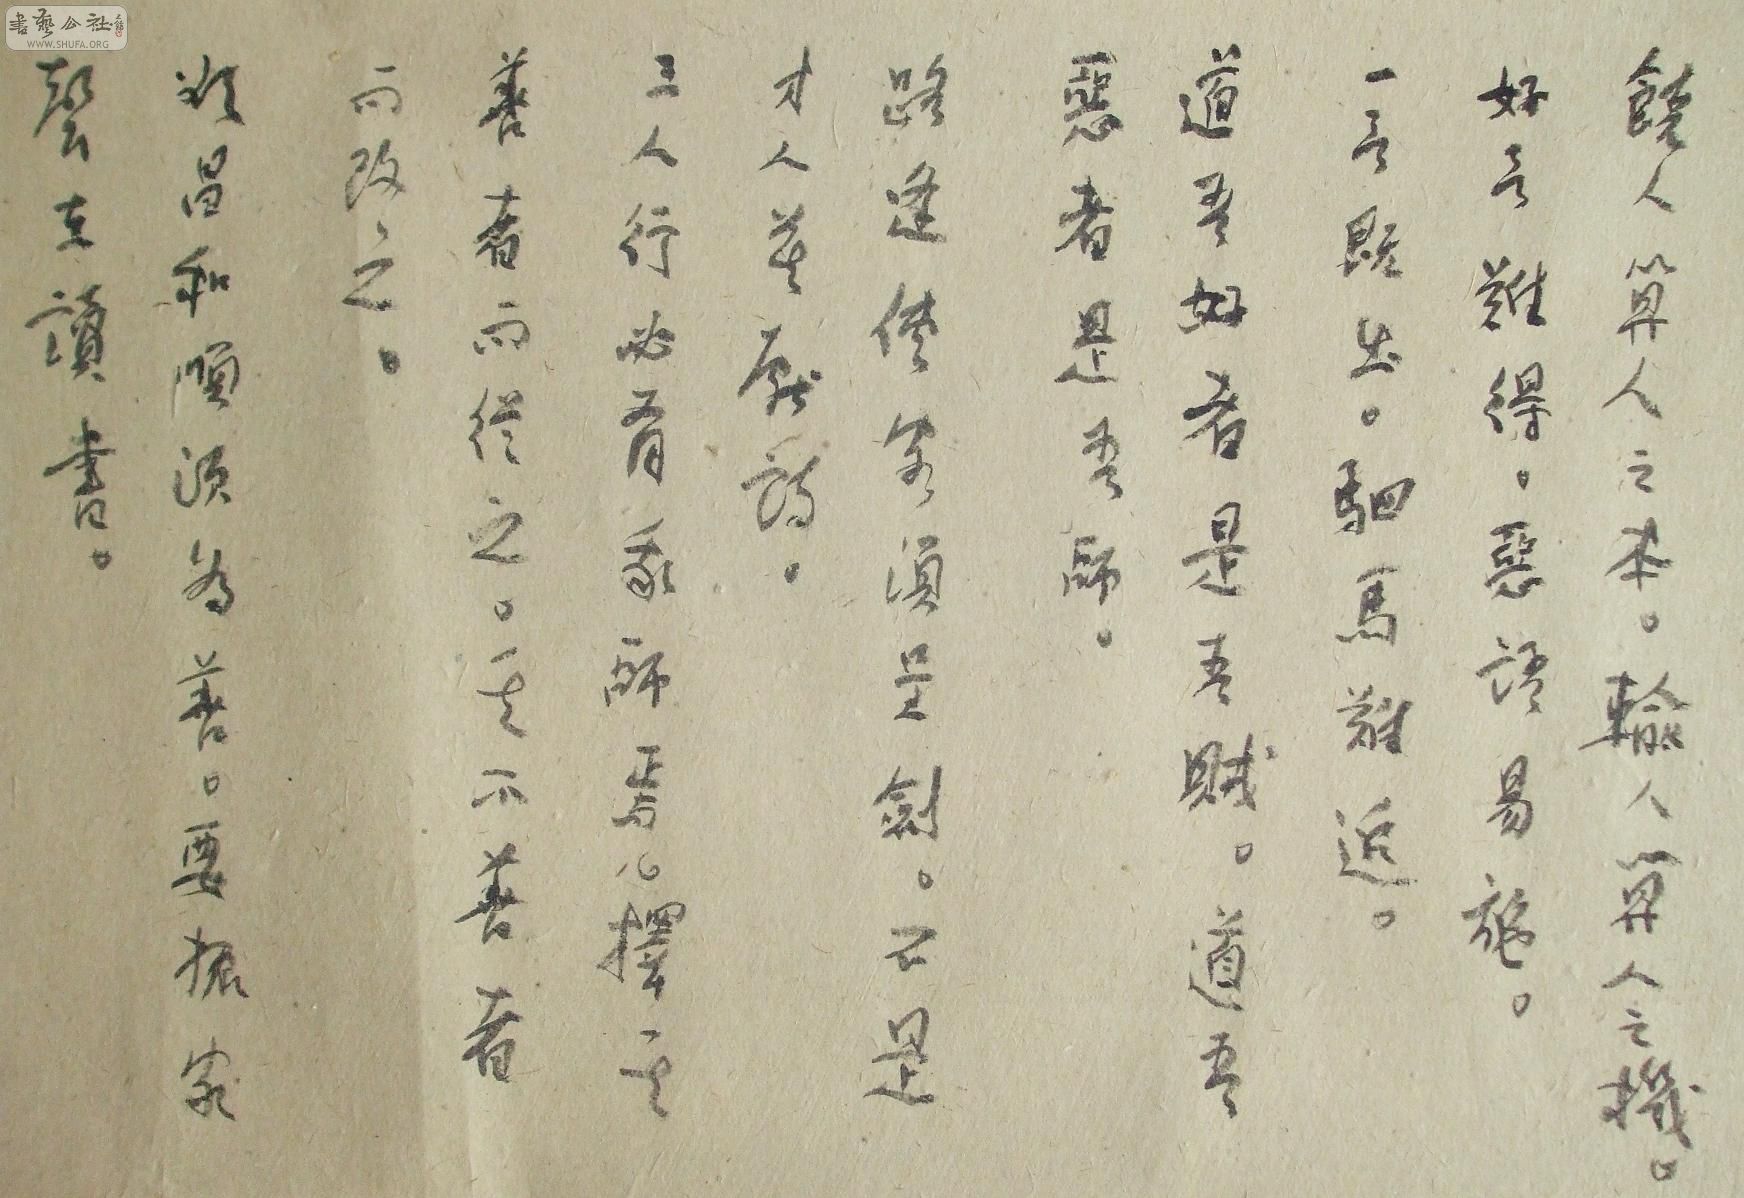 書藝公社
WWW.SHUFA.ORG
饒人算人之本。輸人算人之機。
好言難得。惡語易施。
一言既出。駟馬難追。
道吾好者是吾賊。道吾
惡者是吾師。
路逢俠客須呈劍。不是
才人莫獻詩。
三人行必有我師焉。擇其
善者而從之。其不善者
而改之。
欲昌和順須為善。要振家
聲在讀書。